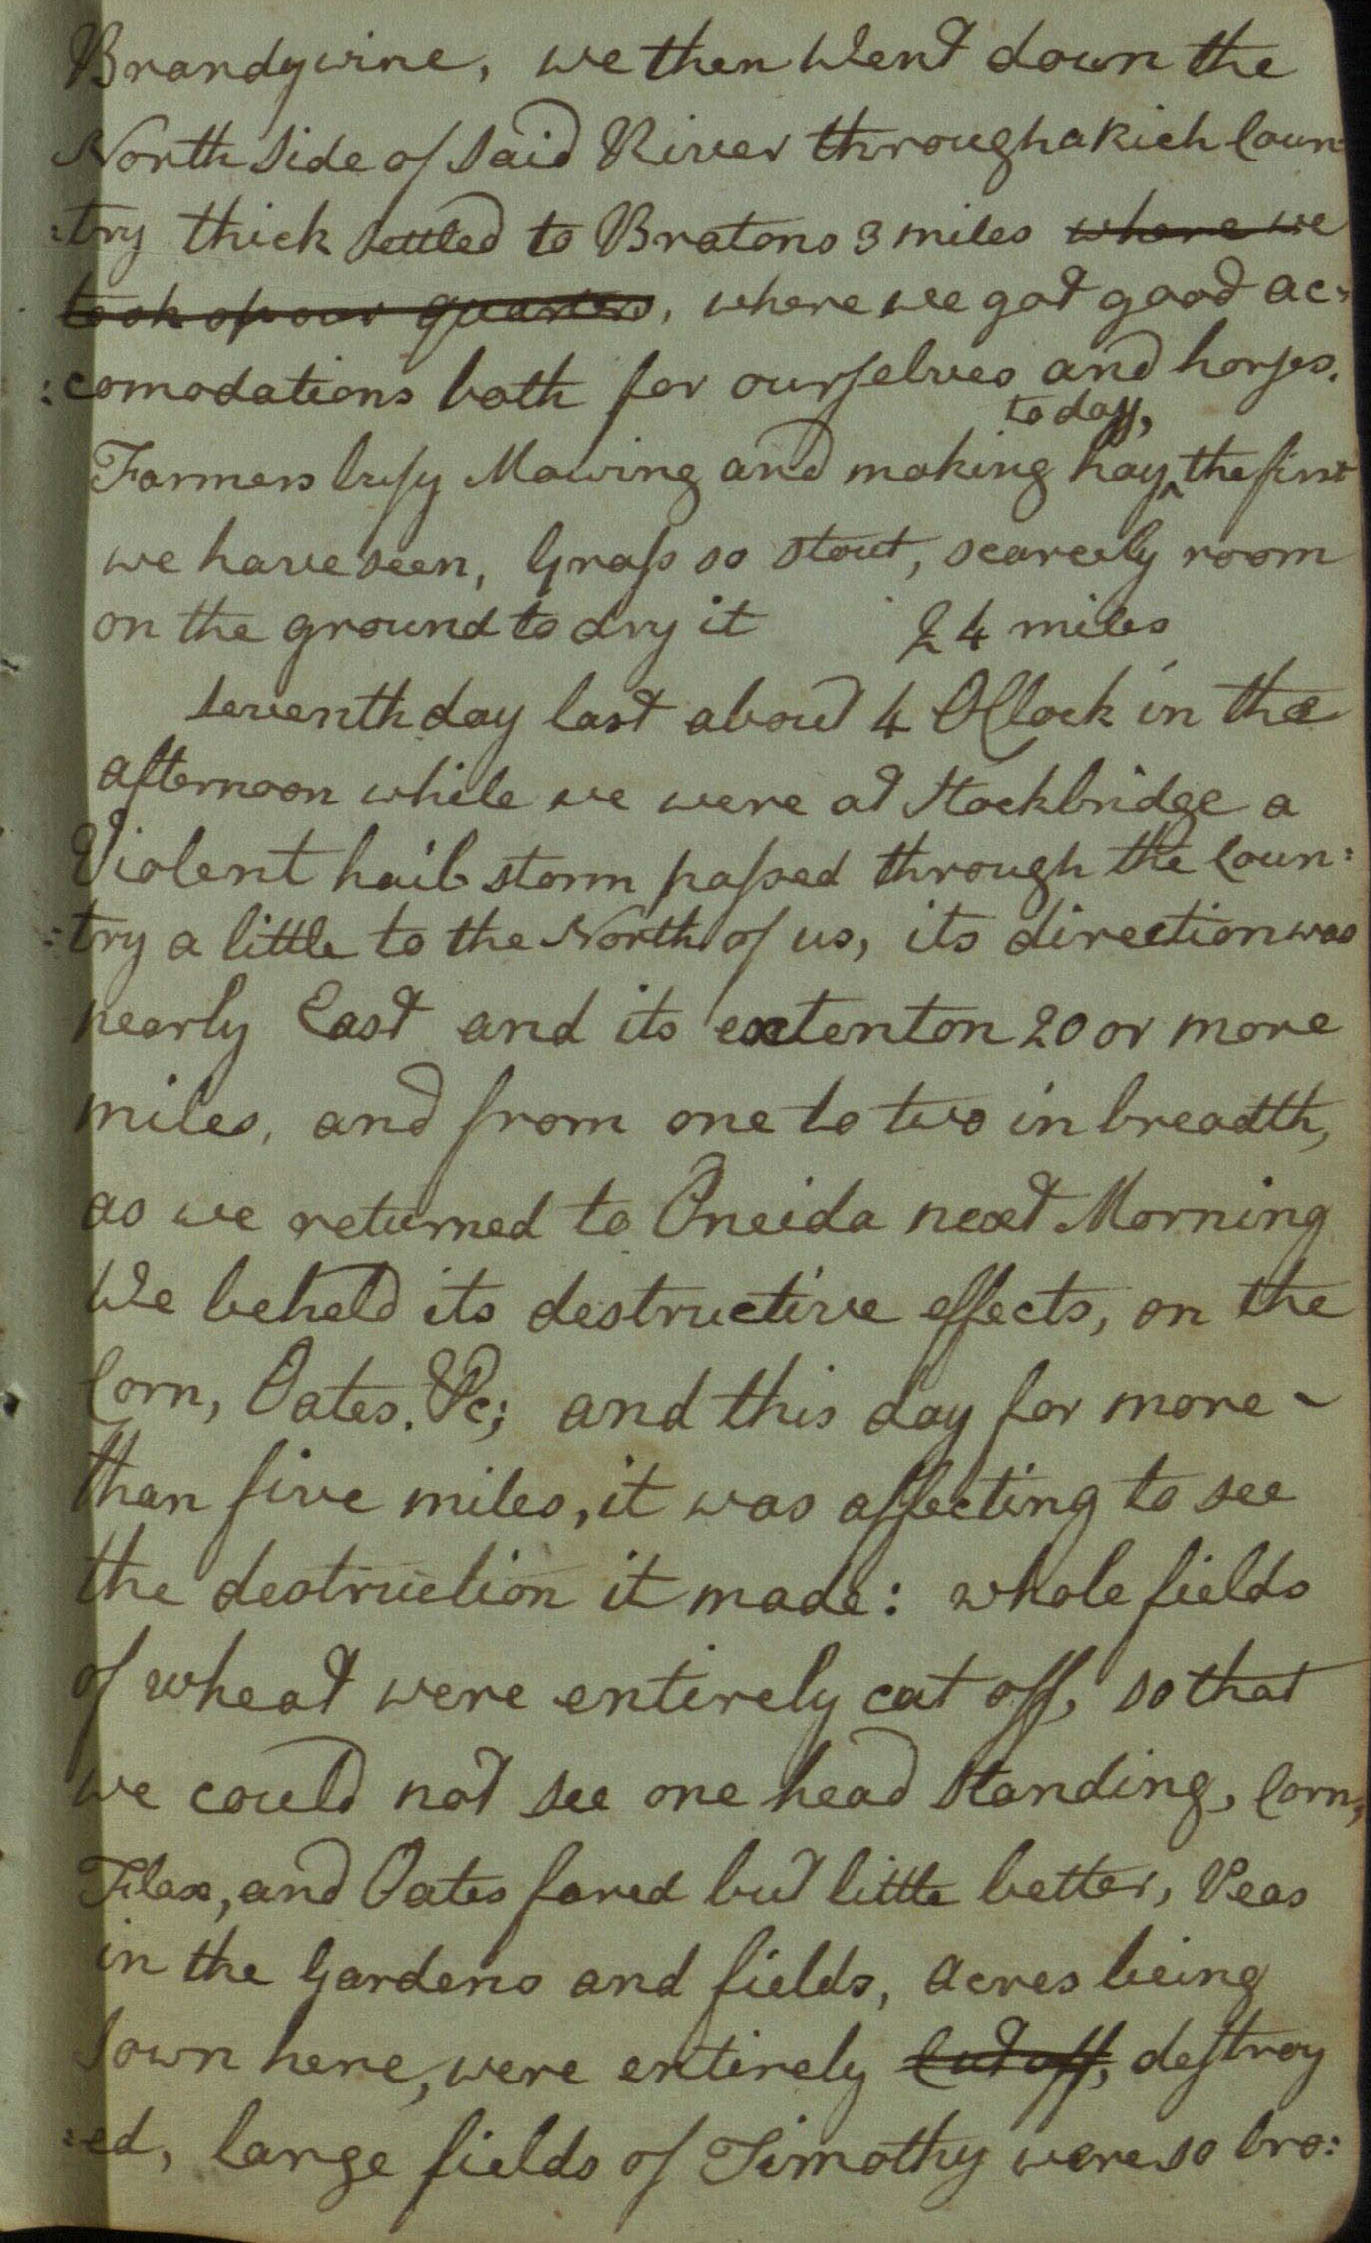 Brandywine, we then Went down the
North side of said River through a Rich Coun
:try thick settled to Bratons 3 miles where we
took up our quarters, where we got good ac:
:comodations both for ourselves and horses.
to day,
Farmers busy Mowing and making hay ^ the first
we have seen, Grass so stout, scarcely room
on the ground to dry it 24 miles
Seventh day last about 4 OClock in the
afternoon while we were at Stockbridge a
Violent hail storm passed through the Coun:
:try a little to the North of us, its direction was
nearly East and its extent on 20 or more
miles, and from one to two in breadth,
as we returned to Oneida next Morning
We beheld its destructive effects, on the
Corn, Oates. &c; and this day for more
than five miles, it was affecting to see
the destruction it made: whole fields
of wheat were entirely cut off, so that
we could not see one head standing, Corn,
Flax, and Oates fared but little better, Peas
in the Gardens and fields, acres being
sown here, were entirely Cut off, destroy
:ed, large fields of Timothy were so bro: